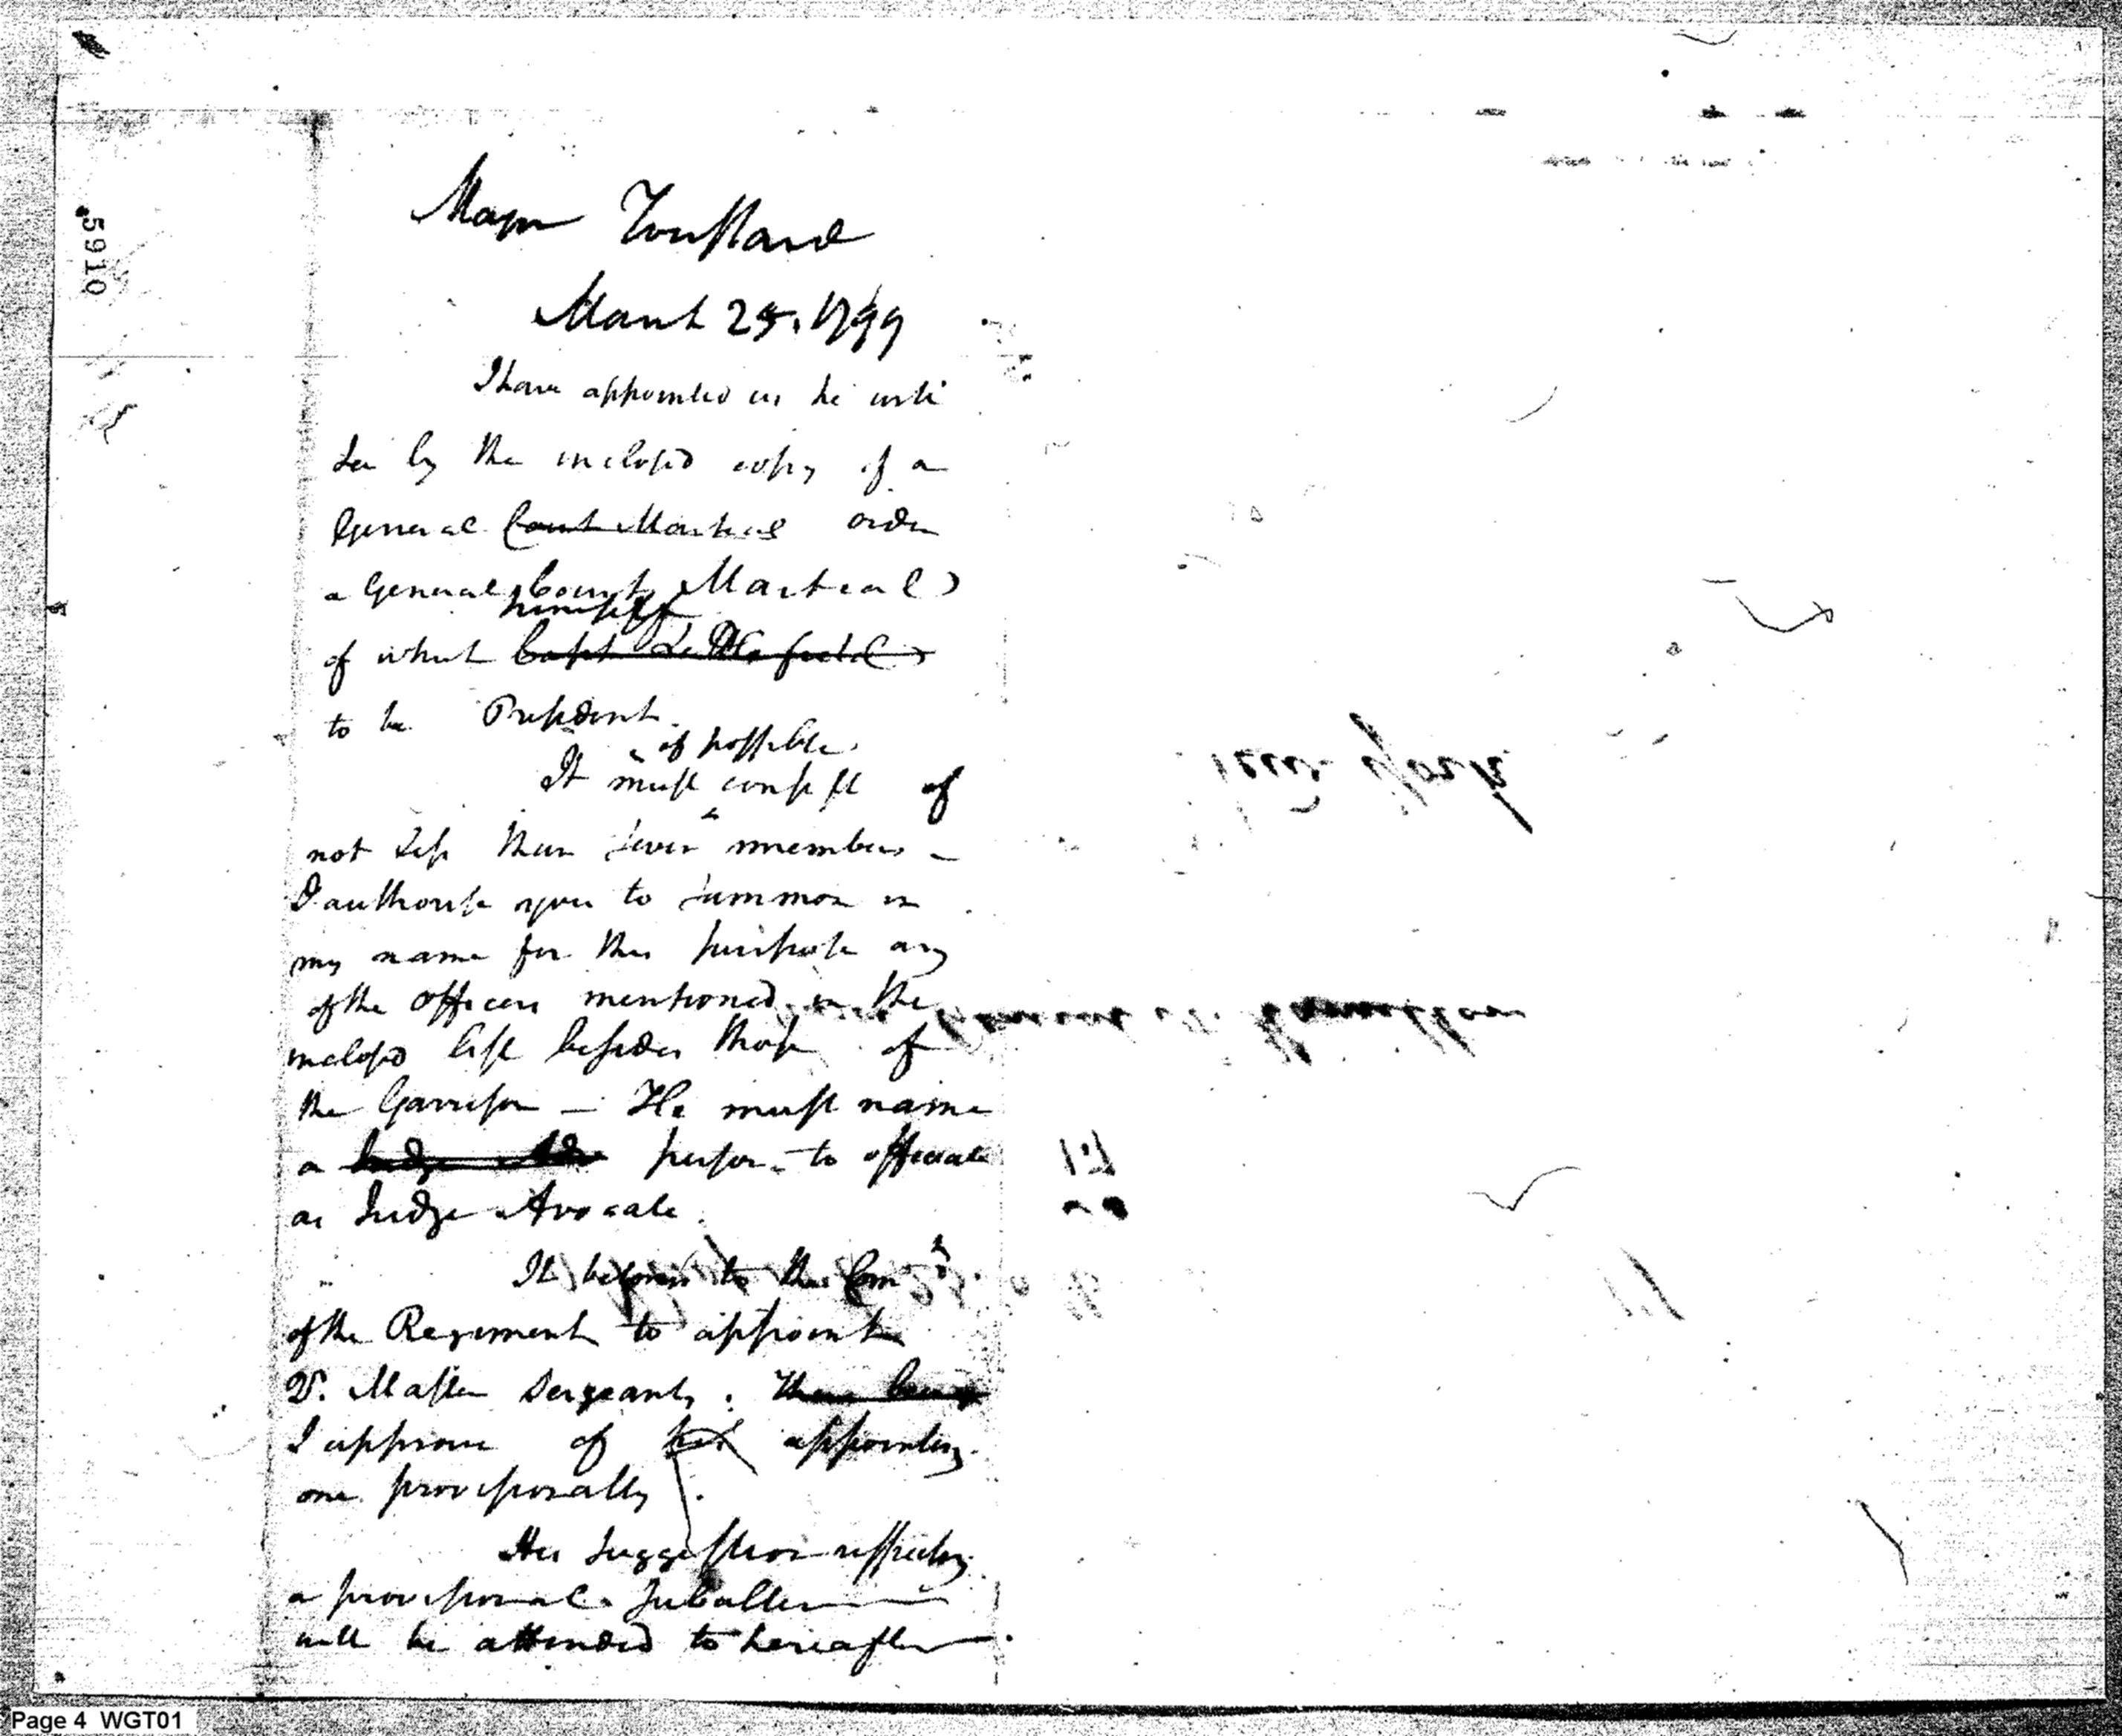 5910
Major Toussard
March 25. 1799
I have appointed as he will
see by the inclosed copy of a
General Court Martial order
a General Court Martial
himself
of which Capt Littlefield
to be President.
if possible
It must consist of
not less than seven members —
I authorise you to summon in
my name for this purpose any
of the officers mentioned in the
inclosed list besides those of
the Garrison — He must name
a Judge Adv person to officiate
as Judge Avocate.
It belongs to the Com
of the Regiment to appoint
Q. Master Sergeants. There being
I approve of his appointing
one provisionally.
His suggestion respecting
a provisional Subaltern
will be attended to hereafter
New York
17
Page 4 WGT01